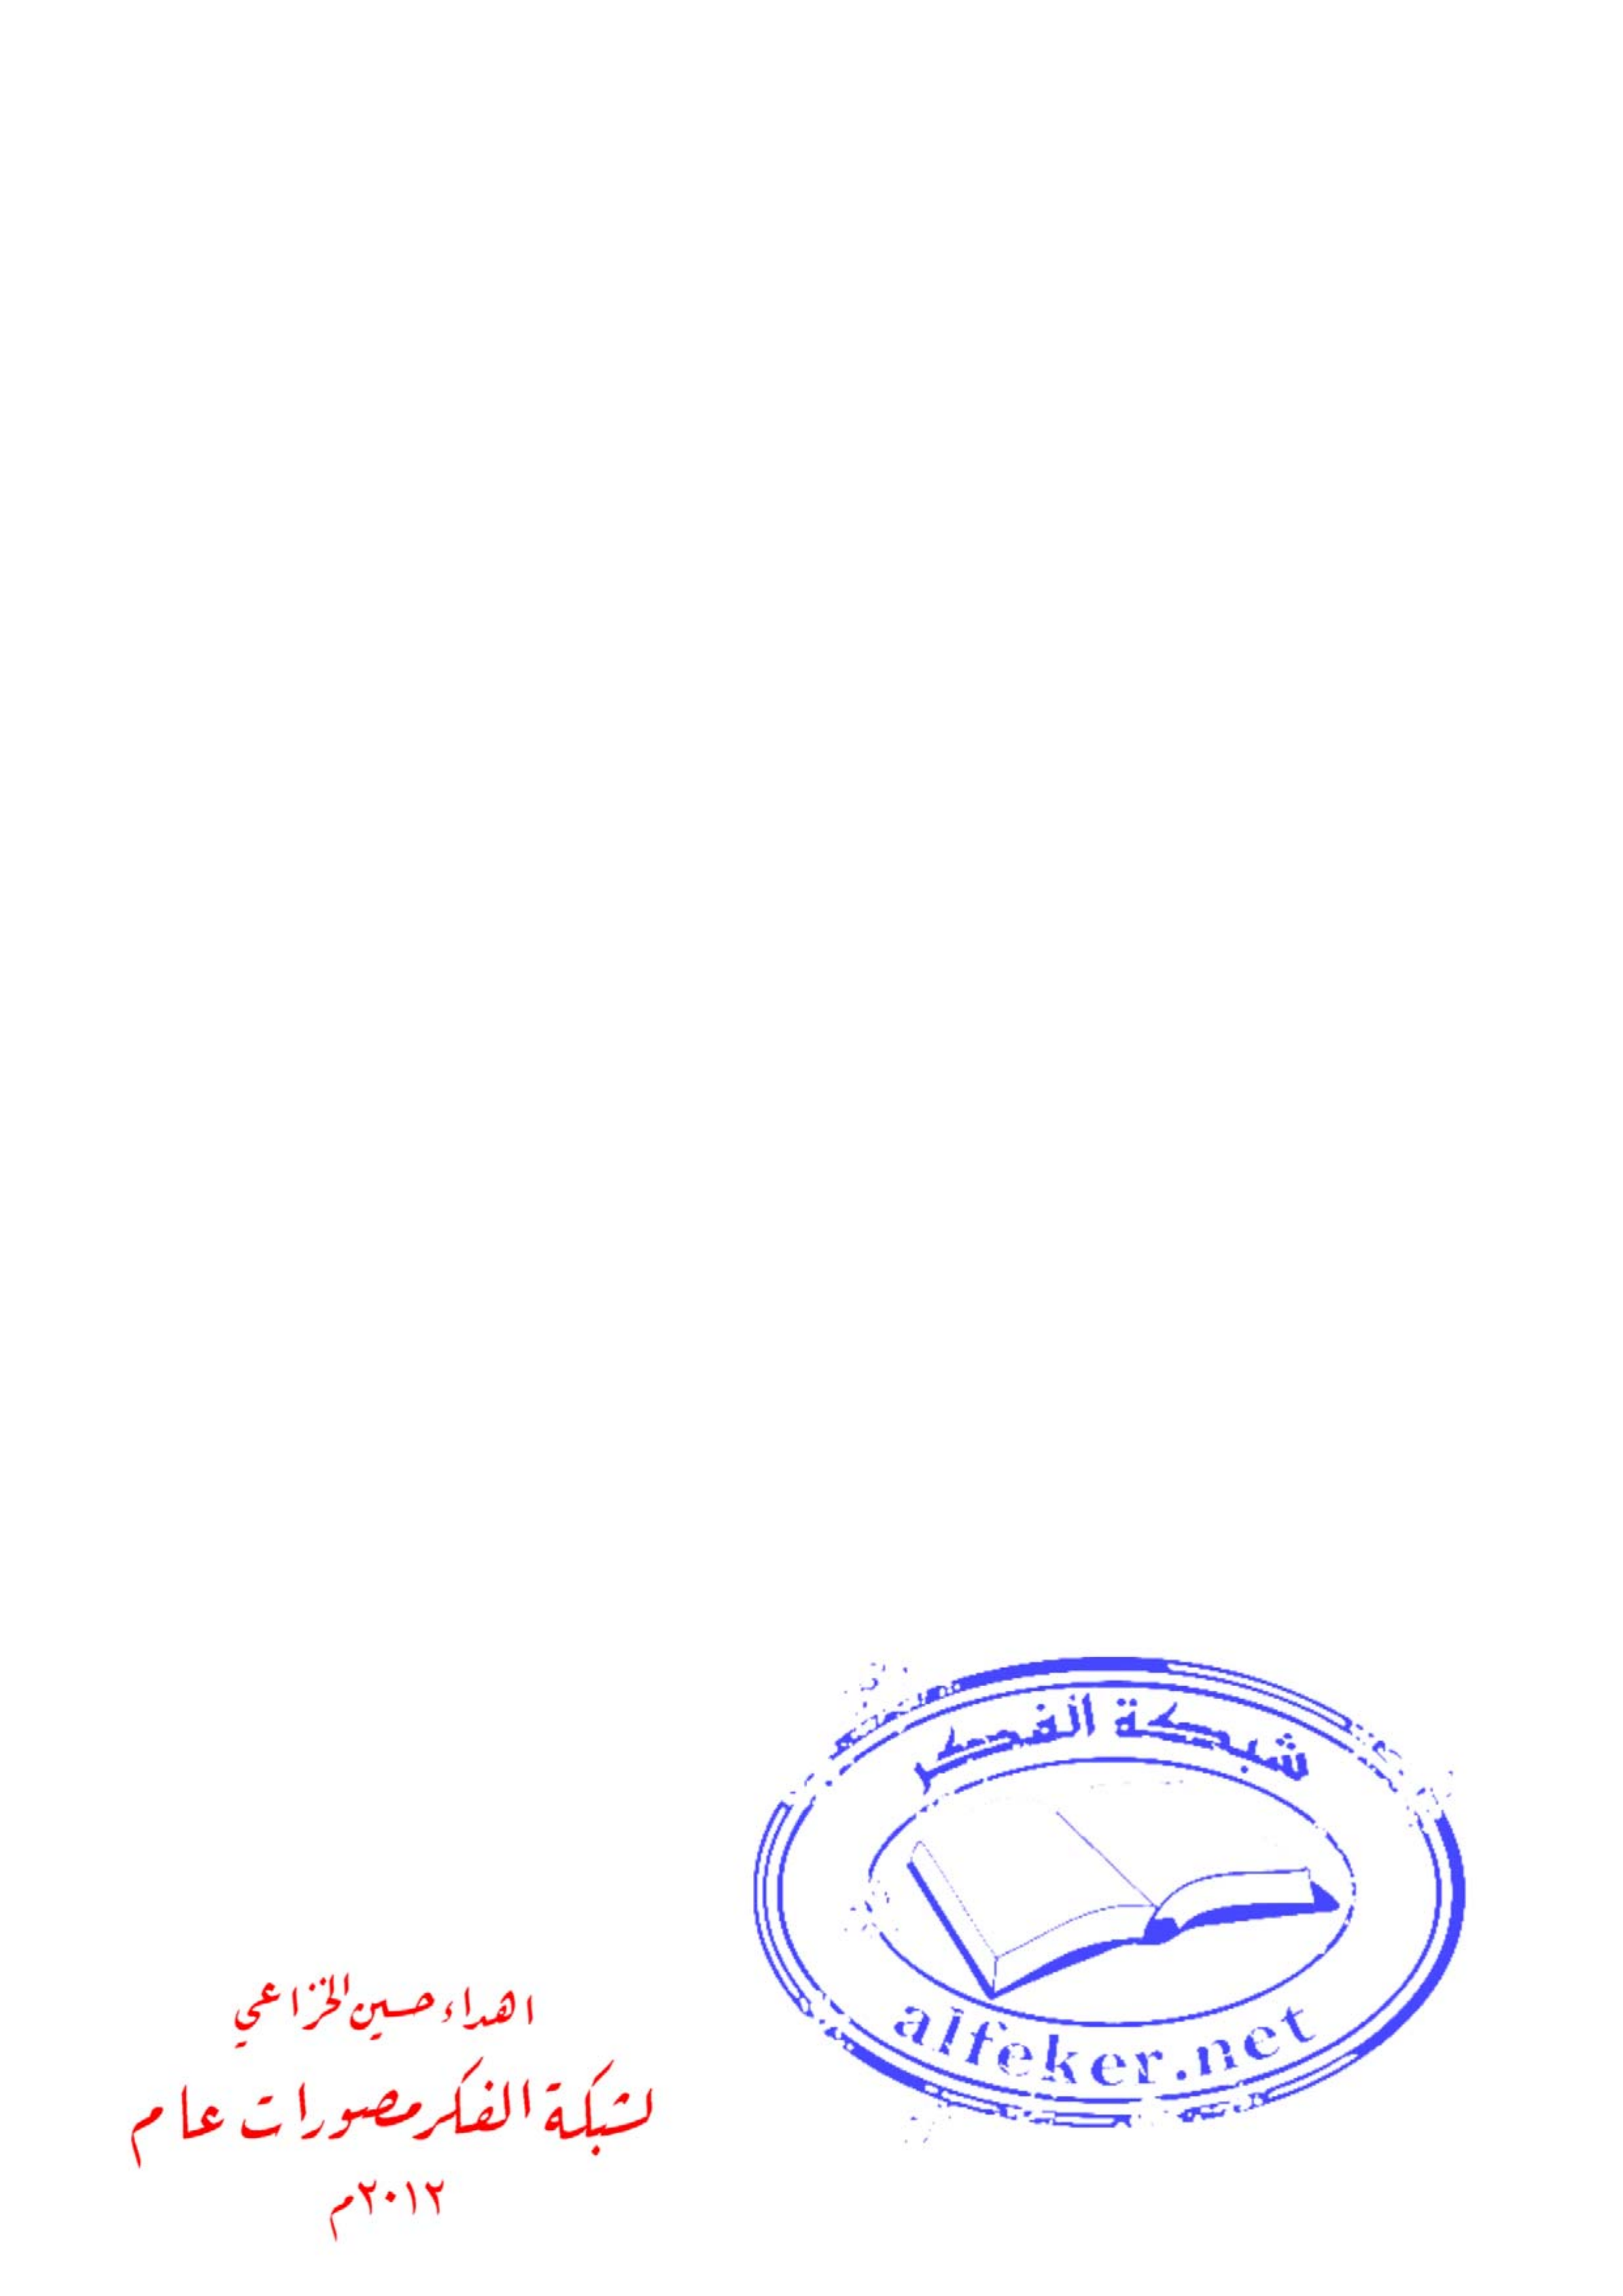 شبكة الفكر
alfeker.net
اهداء حسين الخزاعي
لشبكة الفكر مصورات عام
٢٠١٢م